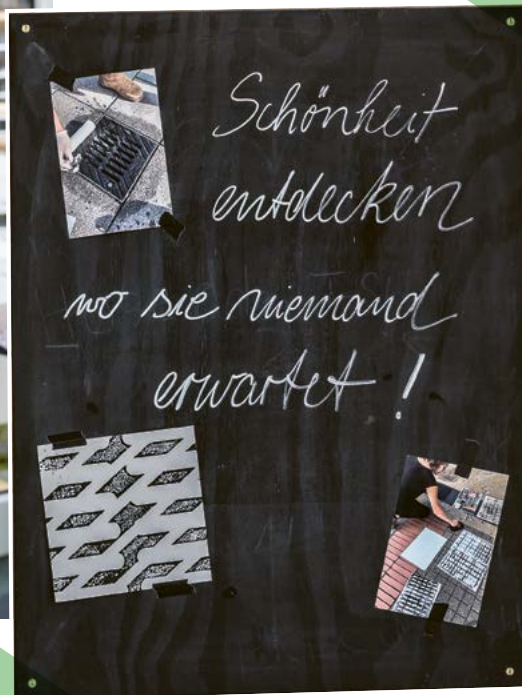 Schönheit
entdecken
wo sie niemand
erwartet !